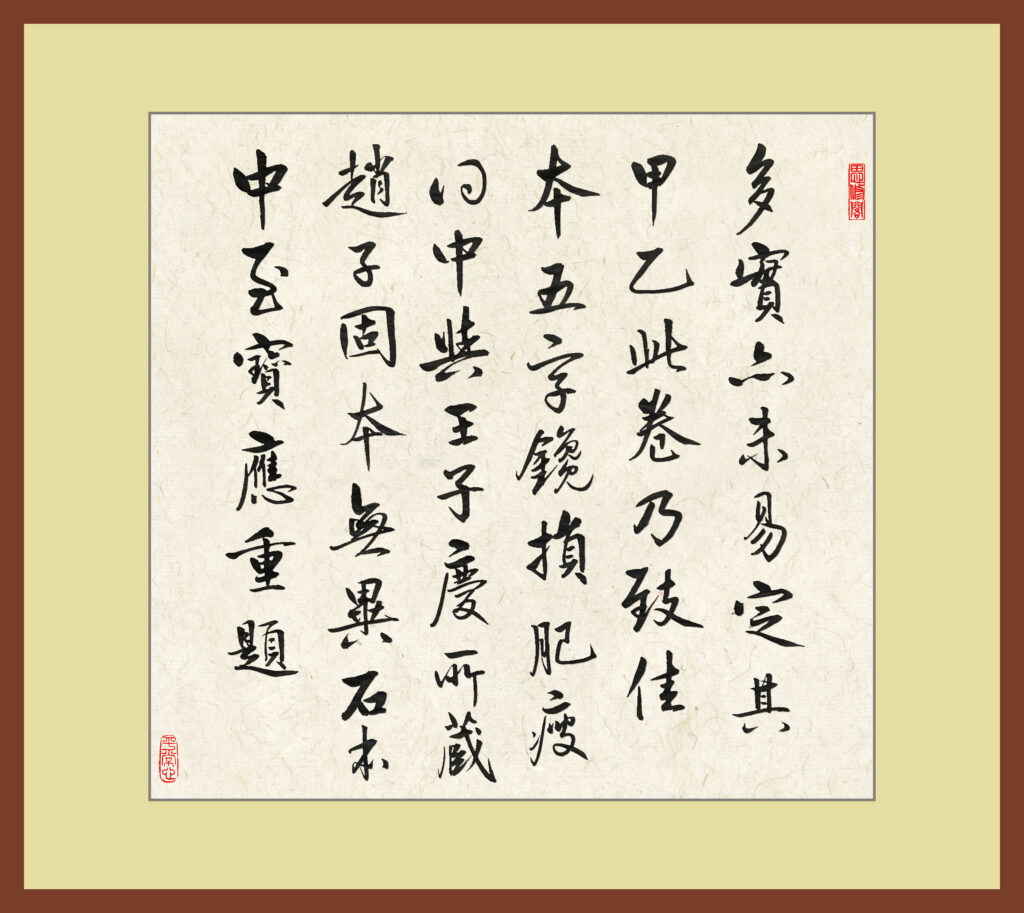 思修閣
多實亦未易定其
甲乙此卷乃致佳
本五字鑱損肥瘦
得中與王子慶所藏
趙子固本無異石本
中至寶應重題
平常心